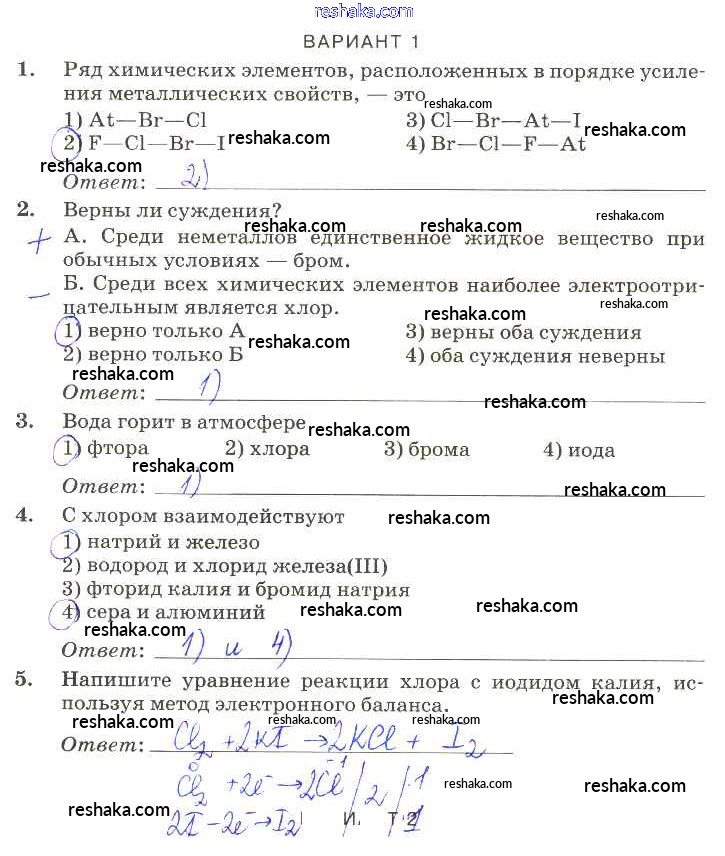 reshak.com
ВАРИАНТ 1
1. Ряд химических элементов, расположенных в порядке усиле-
ния металлических свойств, — это
reshaka.com
1) At—Br—Cl 3) Cl—Br—At—I
2) F—Cl—Br—I reshaka.com 4) Br—Cl—F—At reshaka.com
reshaka.com
Ответ: 2)
2. Верны ли суждения? reshaka.com reshaka.com reshaka.com
+ А. Среди неметаллов единственное жидкое вещество при
обычных условиях — бром. reshaka.com
– Б. Среди всех химических элементов наиболее электроотри-
цательным является хлор. reshaka.com reshaka.com
1) верно только А 3) верны оба суждения
reshaka.com
2) верно только Б 4) оба суждения неверны
reshaka.com
Ответ: 1) reshaka.com
3. Вода горит в атмосфере reshaka.com
1) фтора 2) хлора 3) брома 4) иода
reshaka.com
Ответ: 1) reshaka.com
4. С хлором взаимодействуют reshaka.com
1) натрий и железо
2) водород и хлорид железа(III)
3) фторид калия и бромид натрия
4) сера и алюминий reshaka.com reshaka.com
reshaka.com
Ответ: 1) и 4) reshaka.com
5. Напишите уравнение реакции хлора с иодидом калия, ис-
пользуя метод электронного баланса. reshaka.com
reshaka.com reshaka.com
Ответ: Cl2 + 2KI → 2KCl + I2
Cl2⁰ + 2e⁻ → 2Cl⁻¹ / 2 / ·1 reshaka.com reshaka.com
reshaka.com
2I⁻ – 2e⁻ → I2 / ·1